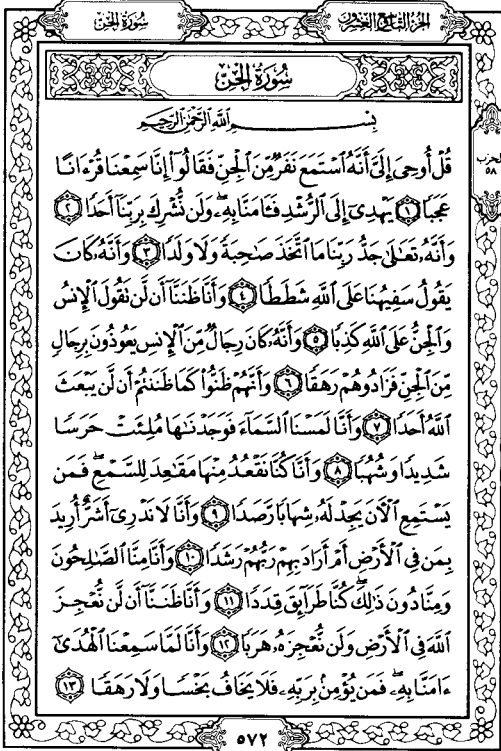 سُورَةُ الجِنّ
الجُزْءُ التَّاسِعُ وَالعِشْرُونَ
سُورَةُ الجِنّ
بِسْمِ ٱللَّهِ ٱلرَّحْمَٰنِ ٱلرَّحِيمِ
الحزب ٥٨
قُلْ أُوحِيَ إِلَيَّ أَنَّهُ ٱسْتَمَعَ نَفَرٌ مِّنَ ٱلْجِنِّ فَقَالُوٓا۟ إِنَّا سَمِعْنَا قُرْءَانًا
عَجَبًا ١ يَهْدِىٓ إِلَى ٱلرُّشْدِ فَـَٔامَنَّا بِهِۦ وَلَن نُّشْرِكَ بِرَبِّنَآ أَحَدًا ٢
وَأَنَّهُۥ تَعَٰلَىٰ جَدُّ رَبِّنَا مَا ٱتَّخَذَ صَٰحِبَةً وَلَا وَلَدًا ٣ وَأَنَّهُۥ كَانَ
يَقُولُ سَفِيهُنَا عَلَى ٱللَّهِ شَطَطًا ٤ وَأَنَّا ظَنَنَّآ أَن لَّن تَقُولَ ٱلْإِنسُ
وَٱلْجِنُّ عَلَى ٱللَّهِ كَذِبًا ٥ وَأَنَّهُۥ كَانَ رِجَالٌ مِّنَ ٱلْإِنسِ يَعُوذُونَ بِرِجَالٍ
مِّنَ ٱلْجِنِّ فَزَادُوهُمْ رَهَقًا ٦ وَأَنَّهُمْ ظَنُّوا۟ كَمَا ظَنَنتُمْ أَن لَّن يَبْعَثَ
ٱللَّهُ أَحَدًا ٧ وَأَنَّا لَمَسْنَا ٱلسَّمَآءَ فَوَجَدْنَٰهَا مُلِئَتْ حَرَسًا
شَدِيدًا وَشُهُبًا ٨ وَأَنَّا كُنَّا نَقْعُدُ مِنْهَا مَقَٰعِدَ لِلسَّمْعِ فَمَن
يَسْتَمِعِ ٱلْءَانَ يَجِدْ لَهُۥ شِهَابًا رَّصَدًا ٩ وَأَنَّا لَا نَدْرِىٓ أَشَرٌّ أُرِيدَ
بِمَن فِى ٱلْأَرْضِ أَمْ أَرَادَ بِهِمْ رَبُّهُمْ رَشَدًا ١٠ وَأَنَّا مِنَّا ٱلصَّٰلِحُونَ
وَمِنَّا دُونَ ذَٰلِكَ كُنَّا طَرَآئِقَ قِدَدًا ١١ وَأَنَّا ظَنَنَّآ أَن لَّن نُّعْجِزَ
ٱللَّهَ فِى ٱلْأَرْضِ وَلَن نُّعْجِزَهُۥ هَرَبًا ١٢ وَأَنَّا لَمَّا سَمِعْنَا ٱلْهُدَىٰٓ
ءَامَنَّا بِهِۦ فَمَن يُؤْمِنۢ بِرَبِّهِۦ فَلَا يَخَافُ بَخْسًا وَلَا رَهَقًا ١٣
٥٧٢